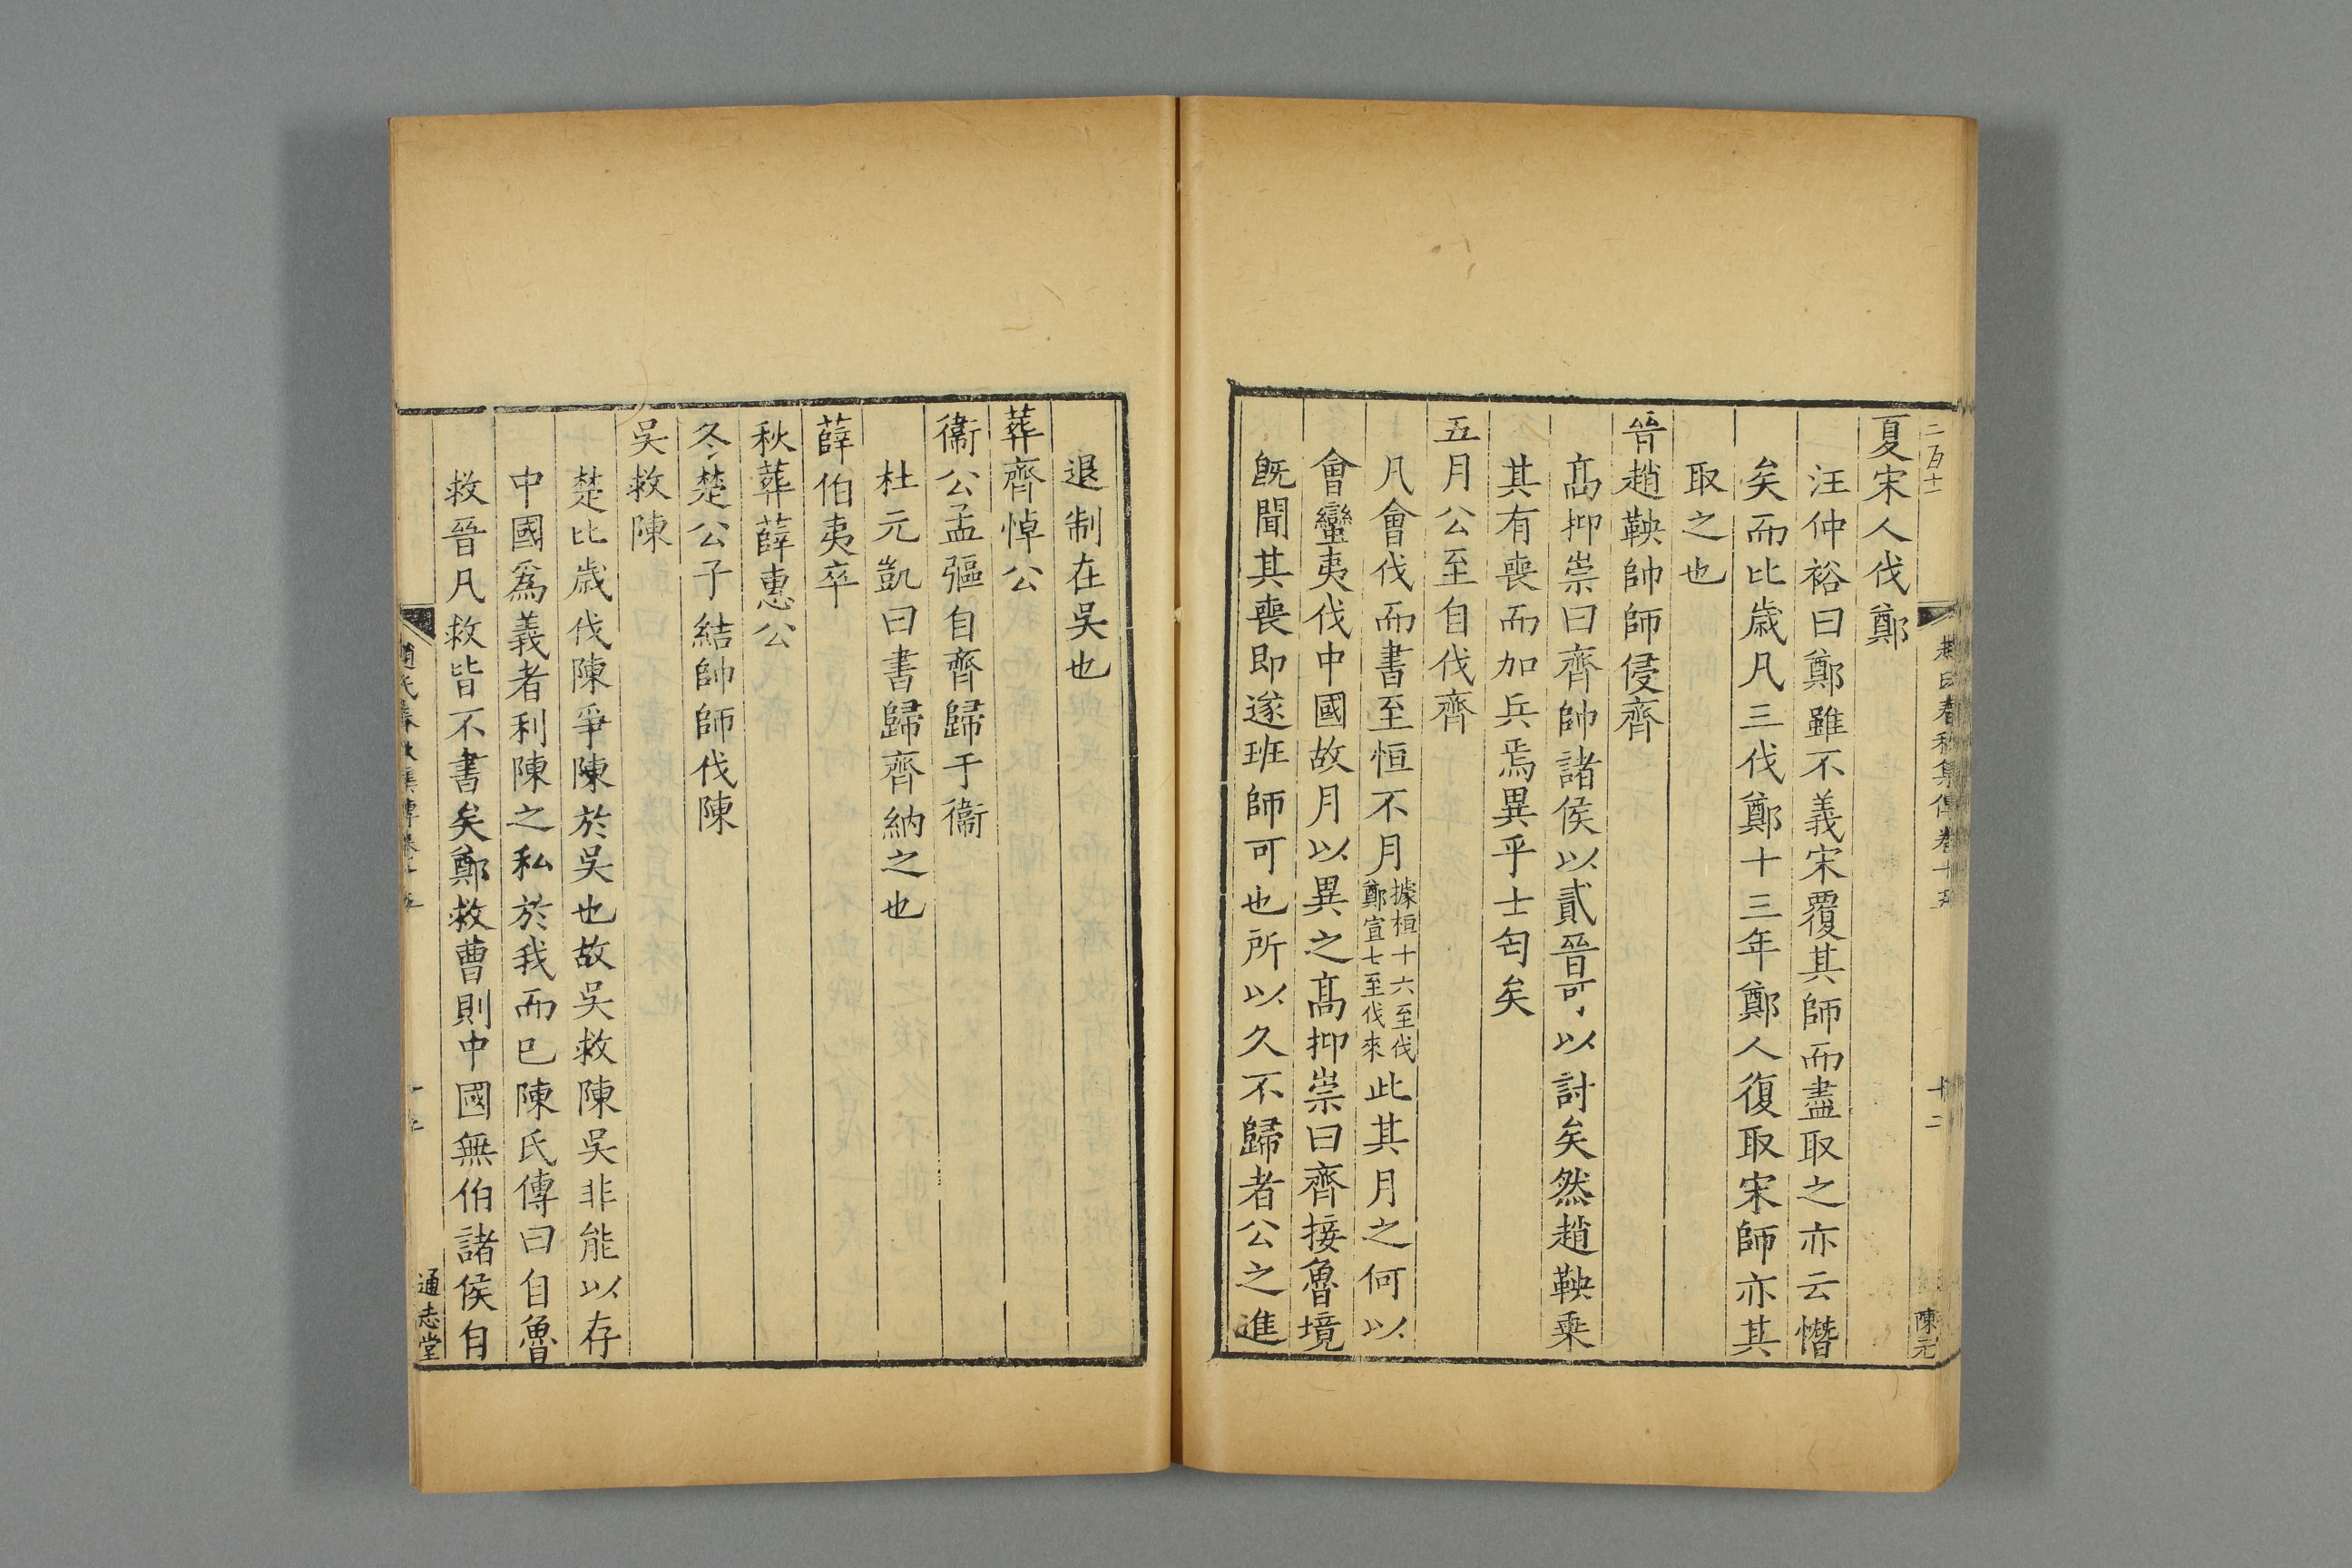 二百十二
陳元
夏宋人伐鄭
汪仲裕曰鄭雖不義宋覆其師而盡取之亦云憯
矣而比歲凡三伐鄭十三年鄭人復取宋師亦其
取之也
晉趙鞅帥師侵齊
髙抑崇曰齊帥諸侯以貳晉可以討矣然趙鞅乗
其有喪而加兵焉異乎士匄矣
五月公至自伐齊
凡會伐而書至恒不月據桓十六至伐鄭宣七至伐來此其月之何以
會蠻夷伐中國故月以異之髙抑崇曰齊接魯境
旣聞其喪即遂班師可也所以久不歸者公之進
退制在吳也
葬齊悼公
衞公孟彄自齊歸于衞
杜元凱曰書歸齊納之也
薛伯夷卒
秋葬薛惠公
冬楚公子結帥師伐陳
吳救陳
楚比歲伐陳爭陳於吳也故吳救陳吳非能以存
中國爲義者利陳之私於我而已陳氏傳曰自魯
救晉凡救皆不書矣鄭救曹則中國無伯諸侯自
通志堂